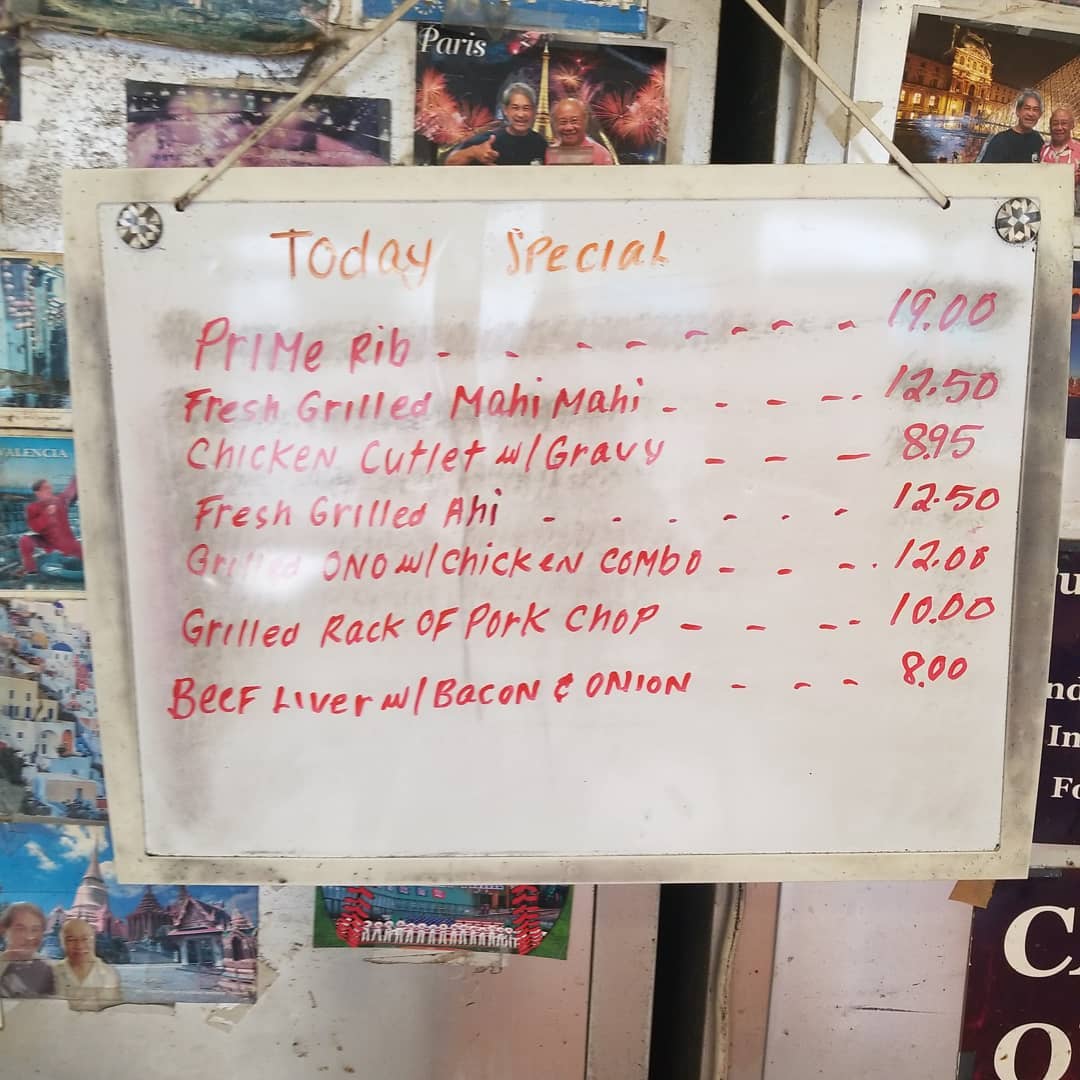 Paris
Today Special
Prime Rib - - - - - - - - 19.00
Fresh Grilled Mahi Mahi - - - - - 12.50
VALENCIA
Chicken Cutlet w/Gravy - - - 8.95
Fresh Grilled Ahi - - - - - - 12.50
Grilled ONO w/Chicken Combo - - - . 12.00
Grilled Rack OF Pork Chop - - - - 10.00
Beef Liver w/Bacon & ONION - - - 8.00
In